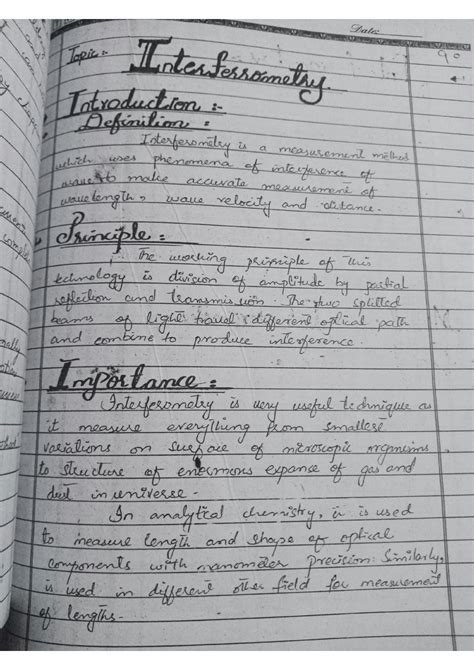 Date:
Topic :-
Interferometry.
Introduction :-
Definition :
Interferometry is a measurement method
which uses phenomena of interference of
wave to make accurate measurement of
wavelength, wave velocity and distance.
Principle :
The working principle of this
technology is division of amplitude by partial
reflection and transmission. The two splitted
beams of light travel different optical path
and combine to produce interference.
Importance :
Interferometry is very useful technique as
it measure everything from smallest
variations on surface of microscopic organisms
to structure of enormous expance of gas and
dust in universe.
In analytical chemistry, it is used
to measure length and shape of optical
components with nanometer precision. Similarly,
is used in different other field for measurement
of lengths.